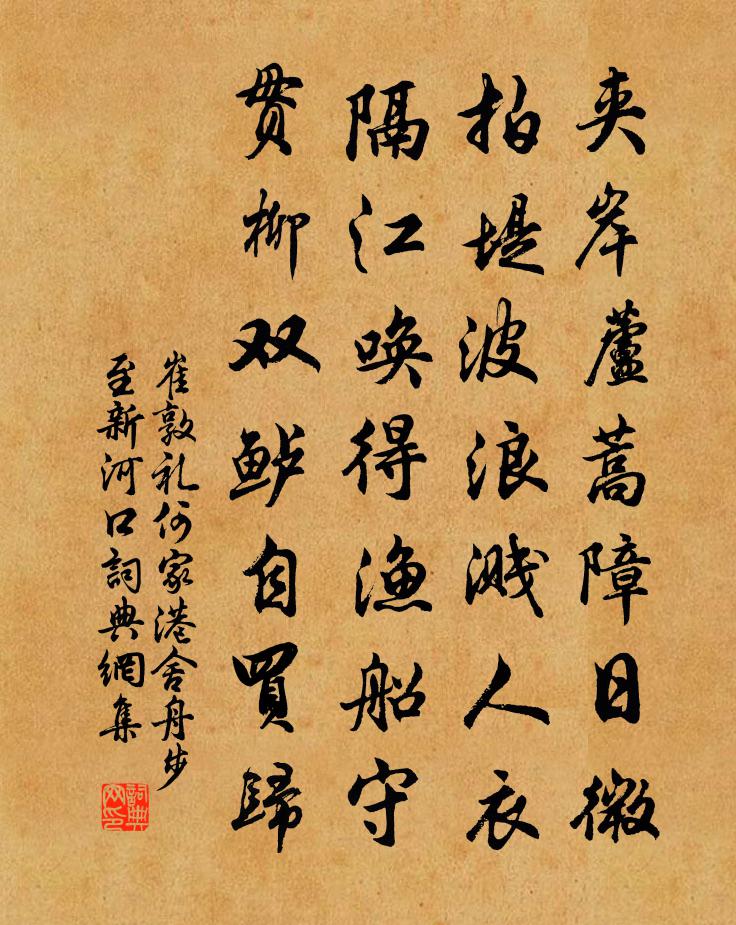 夹岸蘆蒿障日微
拍堤波浪溅人衣
隔江唤得渔船守
贯柳双鲈自買歸
崔敦礼何家港舍舟步
至新河口詞典網集
詞典网印